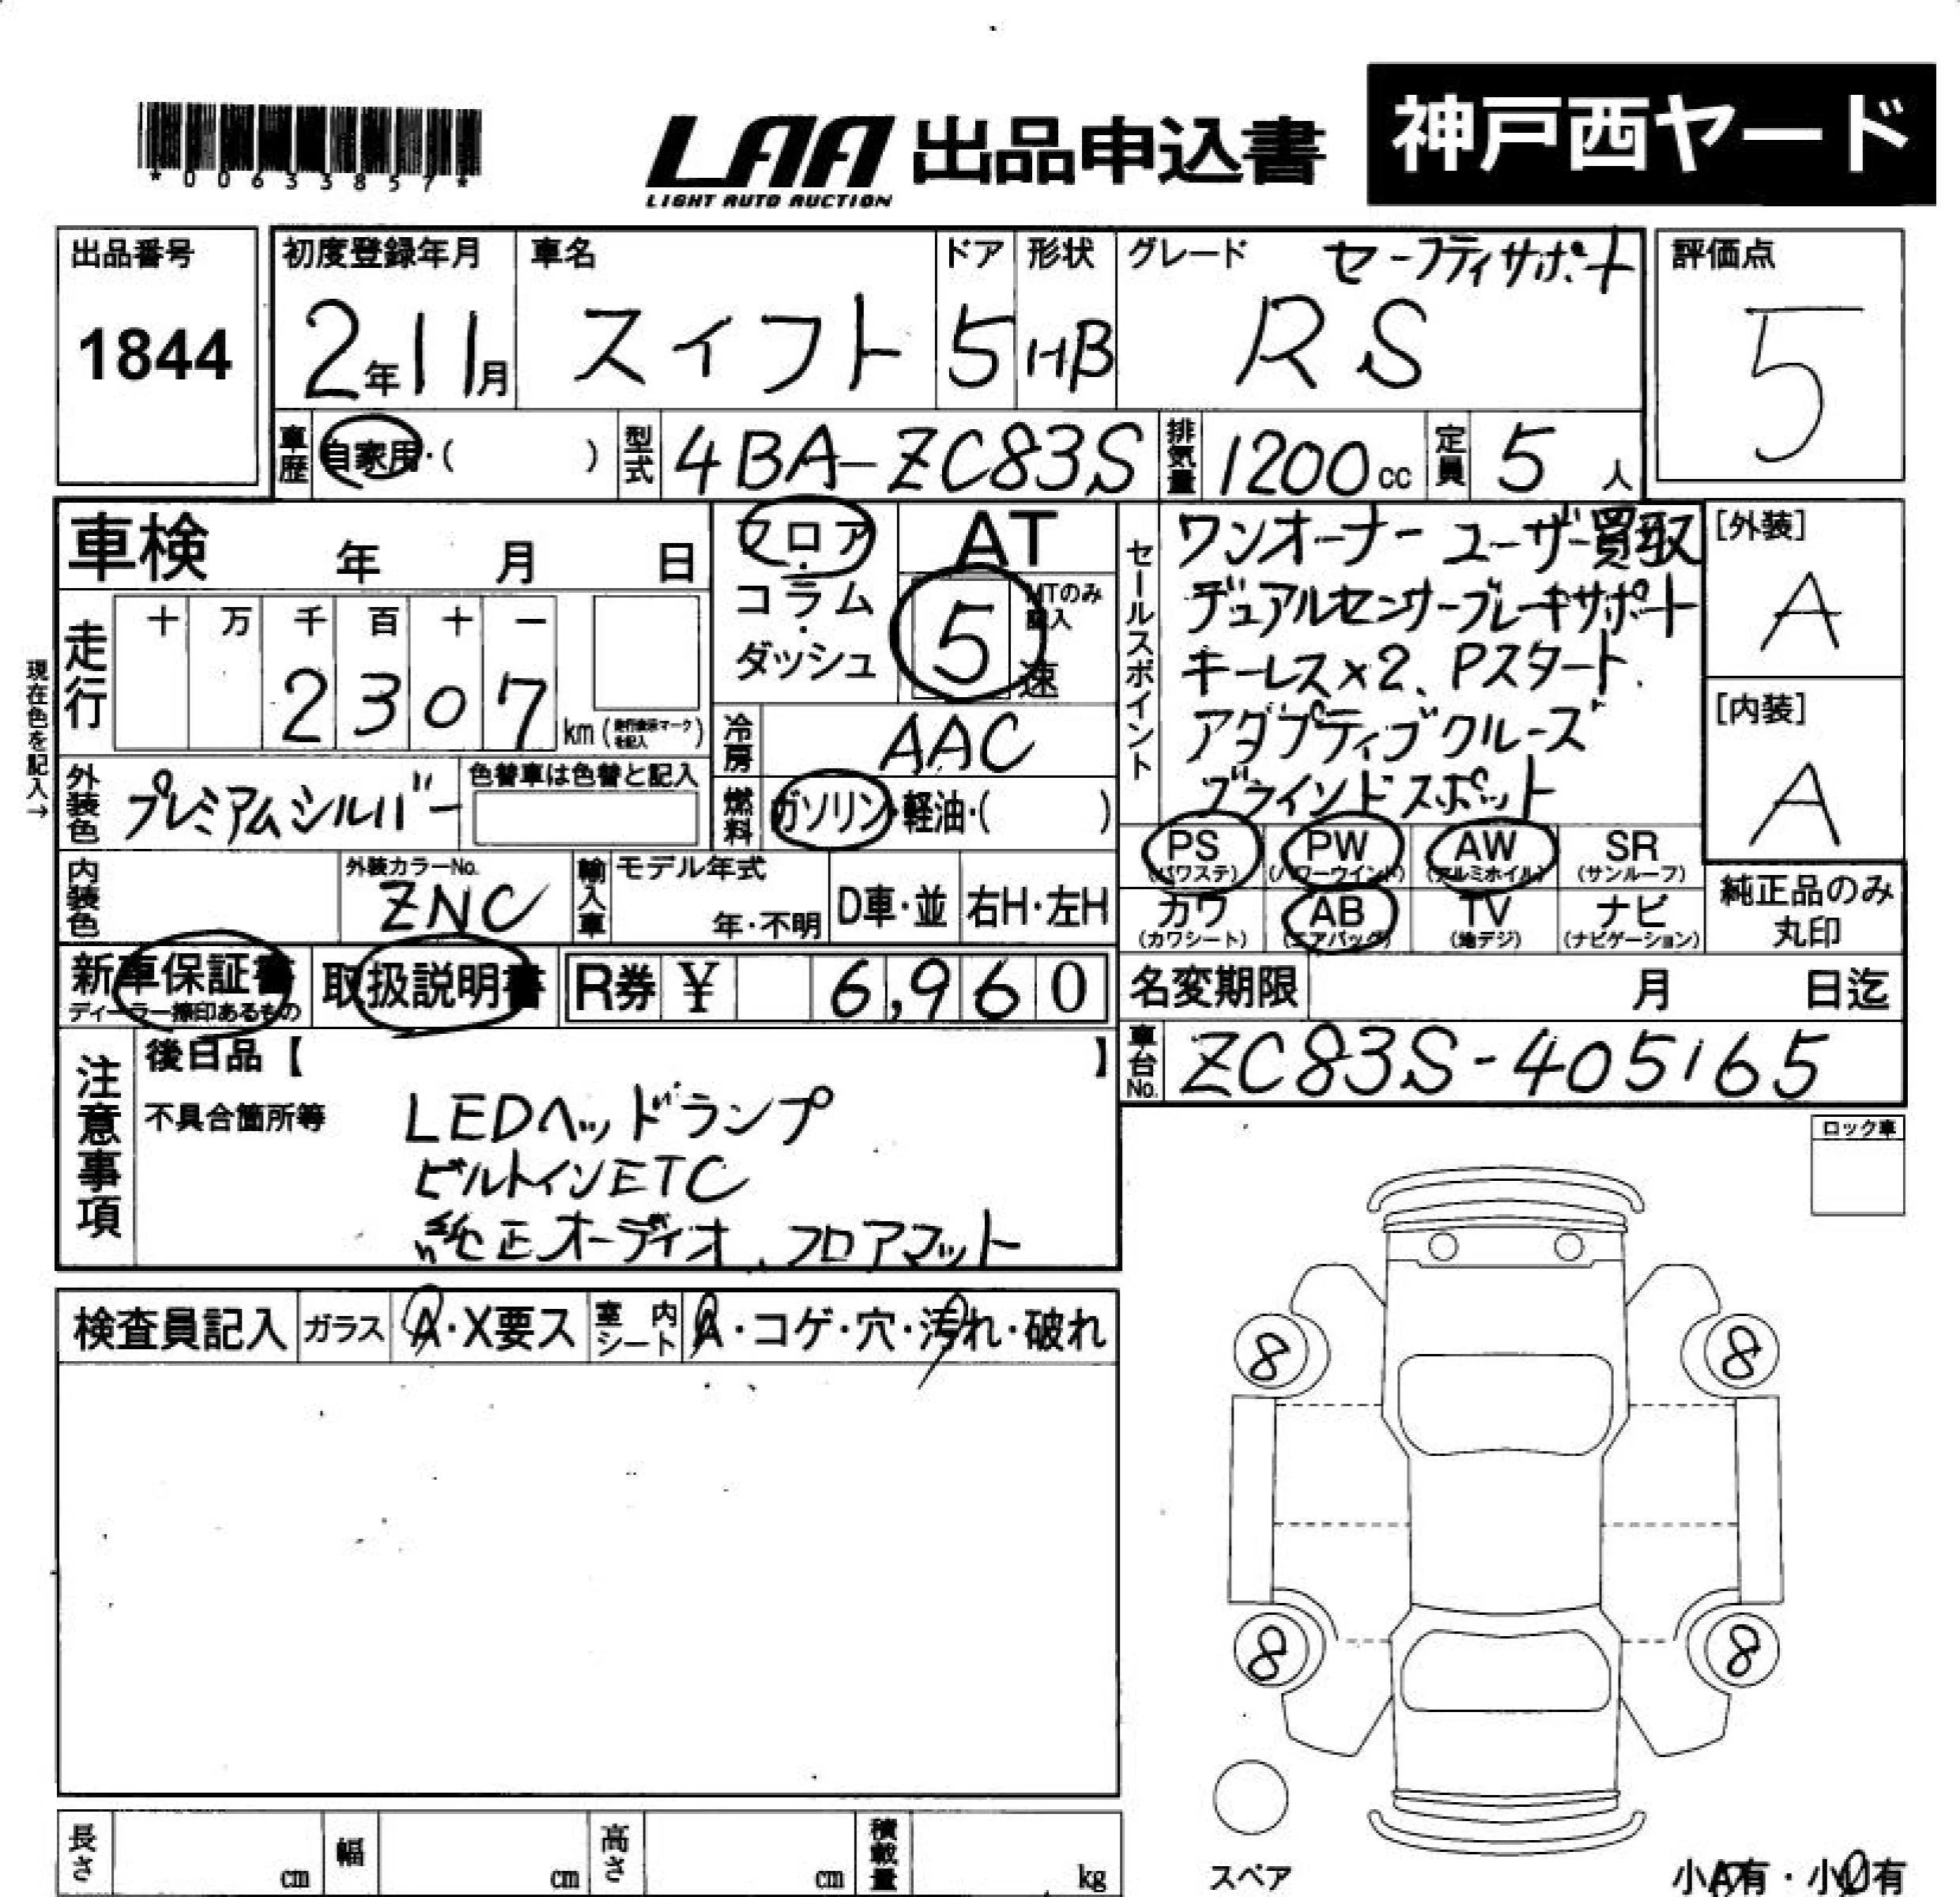 *00633857*
LAA 出品申込書
LIGHT AUTO AUCTION
神戸西ヤード
出品番号
1844
初度登録年月
2年11月
車名
スイフト
ドア
5
形状
HB
グレード
セーフティサポート
RS
評価点
5
車歴
自家用・( )
型式
4BA-ZC83S
排気量
1200cc
定員
5人
車検 年 月 日
フロア・コラム・ダッシュ
AT
5速
MTのみ記入
セールスポイント
ワンオーナー ユーザー買取
デュアルセンサーブレーキサポート
キーレス×2、Pスタート.
アダプティブクルーズ
ブラインドスポット
[外装]
A
[内装]
A
現在色を記入→
走行
十 万 千 百 十 一
2 3 0 7
km(走行表示マークを記入)
冷房
AAC
外装色
プレミアムシルバー
色替車は色替と記入
燃料
ガソリン・軽油・( )
PS
(パワステ)
PW
(パワーウインド)
AW
(アルミホイル)
SR
(サンルーフ)
カワ
(カワシート)
AB
(エアバッグ)
TV
(地デジ)
ナビ
(ナビゲーション)
純正品のみ
丸印
内装色
外装カラーNo.
ZNC
輸入車
モデル年式
年・不明
D車・並
右H・左H
新車保証書
ディーラー捺印あるもの
取扱説明書
R券 ¥ 6,960
名変期限 月 日迄
車台No.
ZC83S-405165
注意事項
後日品【 】
不具合箇所等
LEDヘッドランプ
ビルトインETC
純正オーディオ、フロアマット
ロック車
検査員記入
ガラス
A・X要ス
室内シート
A・コゲ・穴・汚れ・破れ
8
8
8
8
スペア
長さ cm
幅 cm
高さ cm
積載量 kg
小A有・小U有